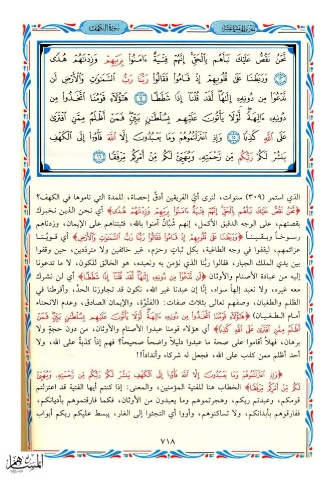 سورة الكهف
نَحْنُ نَقُصُّ عَلَيْكَ نَبَأَهُم بِالْحَقِّ إِنَّهُمْ فِتْيَةٌ ءَامَنُوا۟ بِرَبِّهِمْ وَزِدْنَٰهُمْ هُدًى
۝١٣ وَرَبَطْنَا عَلَىٰ قُلُوبِهِمْ إِذْ قَامُوا۟ فَقَالُوا۟ رَبُّنَا رَبُّ السَّمَٰوَٰتِ وَالْأَرْضِ لَن
نَّدْعُوَا۟ مِن دُونِهِۦٓ إِلَٰهًا لَّقَدْ قُلْنَآ إِذًا شَطَطًا ۝١٤ هَٰٓؤُلَآءِ قَوْمُنَا اتَّخَذُوا۟ مِن
دُونِهِۦٓ ءَالِهَةً لَّوْلَا يَأْتُونَ عَلَيْهِم بِسُلْطَٰنٍۭ بَيِّنٍ فَمَنْ أَظْلَمُ مِمَّنِ افْتَرَىٰ
عَلَى اللَّهِ كَذِبًا ۝١٥ وَإِذِ اعْتَزَلْتُمُوهُمْ وَمَا يَعْبُدُونَ إِلَّا اللَّهَ فَأْوُۥٓا۟ إِلَى الْكَهْفِ
يَنشُرْ لَكُمْ رَبُّكُم مِّن رَّحْمَتِهِۦ وَيُهَيِّئْ لَكُم مِّنْ أَمْرِكُم مِّرْفَقًا ۝١٦
الذي استمر (٣٠٩) سنوات، لنرى أيّ الفريقين أدقّ إحصاءً، للمدة التي ناموها في الكهف؟
﴿نَحْنُ نَقُصُّ عَلَيْكَ نَبَأَهُم بِالْحَقِّ إِنَّهُمْ فِتْيَةٌ ءَامَنُوا۟ بِرَبِّهِمْ وَزِدْنَٰهُمْ هُدًى﴾ أي نحن الذين نخبرك
بقصتهم، على الوجه الدقيق الأكمل، إنهم شُبَّانٌ آمنوا بالله، فثبتناهم على الإيمان، وزدناهم
رسوخاً ويقيناً ﴿وَرَبَطْنَا عَلَىٰ قُلُوبِهِمْ إِذْ قَامُوا۟ فَقَالُوا۟ رَبُّنَا رَبُّ السَّمَٰوَٰتِ وَالْأَرْضِ﴾ أي قوَّينا
عزائمهم، ليقفوا في وجه الطاغية، بكل ثباتٍ وحزم، غير خائفين ولا متردّدين، حين وقفوا
بين يدي الملك الجبار، فقالوا ربُّنا الذي نؤمن به ونعبده، هو الخالق للكون، لا ما تدعونا
إليه من عبادة الأصنام والأوثان ﴿لَن نَّدْعُوَا۟ مِن دُونِهِۦٓ إِلَٰهًا لَّقَدْ قُلْنَآ إِذًا شَطَطًا﴾ أي لن نشرك
معه غيره، ولا نعبد إلهاً سواه، إنَّا إن عبدنا غير الله، نكون قد تجاوزنا الحدَّ، وأفرطنا في
الظلم والطغيان، وصفهم تعالى بثلاث صفات: (الفُتُوَّة، والإيمان الصادق، وعدم الانحناء
أمام الطغيان) ﴿هَٰٓؤُلَآءِ قَوْمُنَا اتَّخَذُوا۟ مِن دُونِهِۦٓ ءَالِهَةً لَّوْلَا يَأْتُونَ عَلَيْهِم بِسُلْطَٰنٍۭ بَيِّنٍ فَمَنْ
أَظْلَمُ مِمَّنِ افْتَرَىٰ عَلَى اللَّهِ كَذِبًا﴾ أي هؤلاء قومنا عبدوا الأصنام والأوثان، من دون حجةٍ ولا
برهان، فهلَّا أقاموا على صحة ما عبدوا دليلاً واضحاً صحيحاً؟ فهم إذاً كذبةٌ على الله، ولا
أحد أظلم ممن كذب على الله، فجعل له شركاء وأنداداً!!
﴿وَإِذِ اعْتَزَلْتُمُوهُمْ وَمَا يَعْبُدُونَ إِلَّا اللَّهَ فَأْوُۥٓا۟ إِلَى الْكَهْفِ يَنشُرْ لَكُمْ رَبُّكُم مِّن رَّحْمَتِهِۦ وَيُهَيِّئْ
لَكُم مِّنْ أَمْرِكُم مِّرْفَقًا﴾ الخطاب هنا للفتية المؤمنين، والمعنى: إذا كنتم أيها الفتية قد اعتزلتم
قومكم، وعبدتم ربكم، وهجرتموهم وما يعبدون من الأوثان، فكما فارقتموهم بأديانكم،
ففارقوهم بأبدانكم، ولا تساكنوهم، وأووا أي التجئوا إلى الغار، يبسط عليكم ربكم أبواب
٧١٨